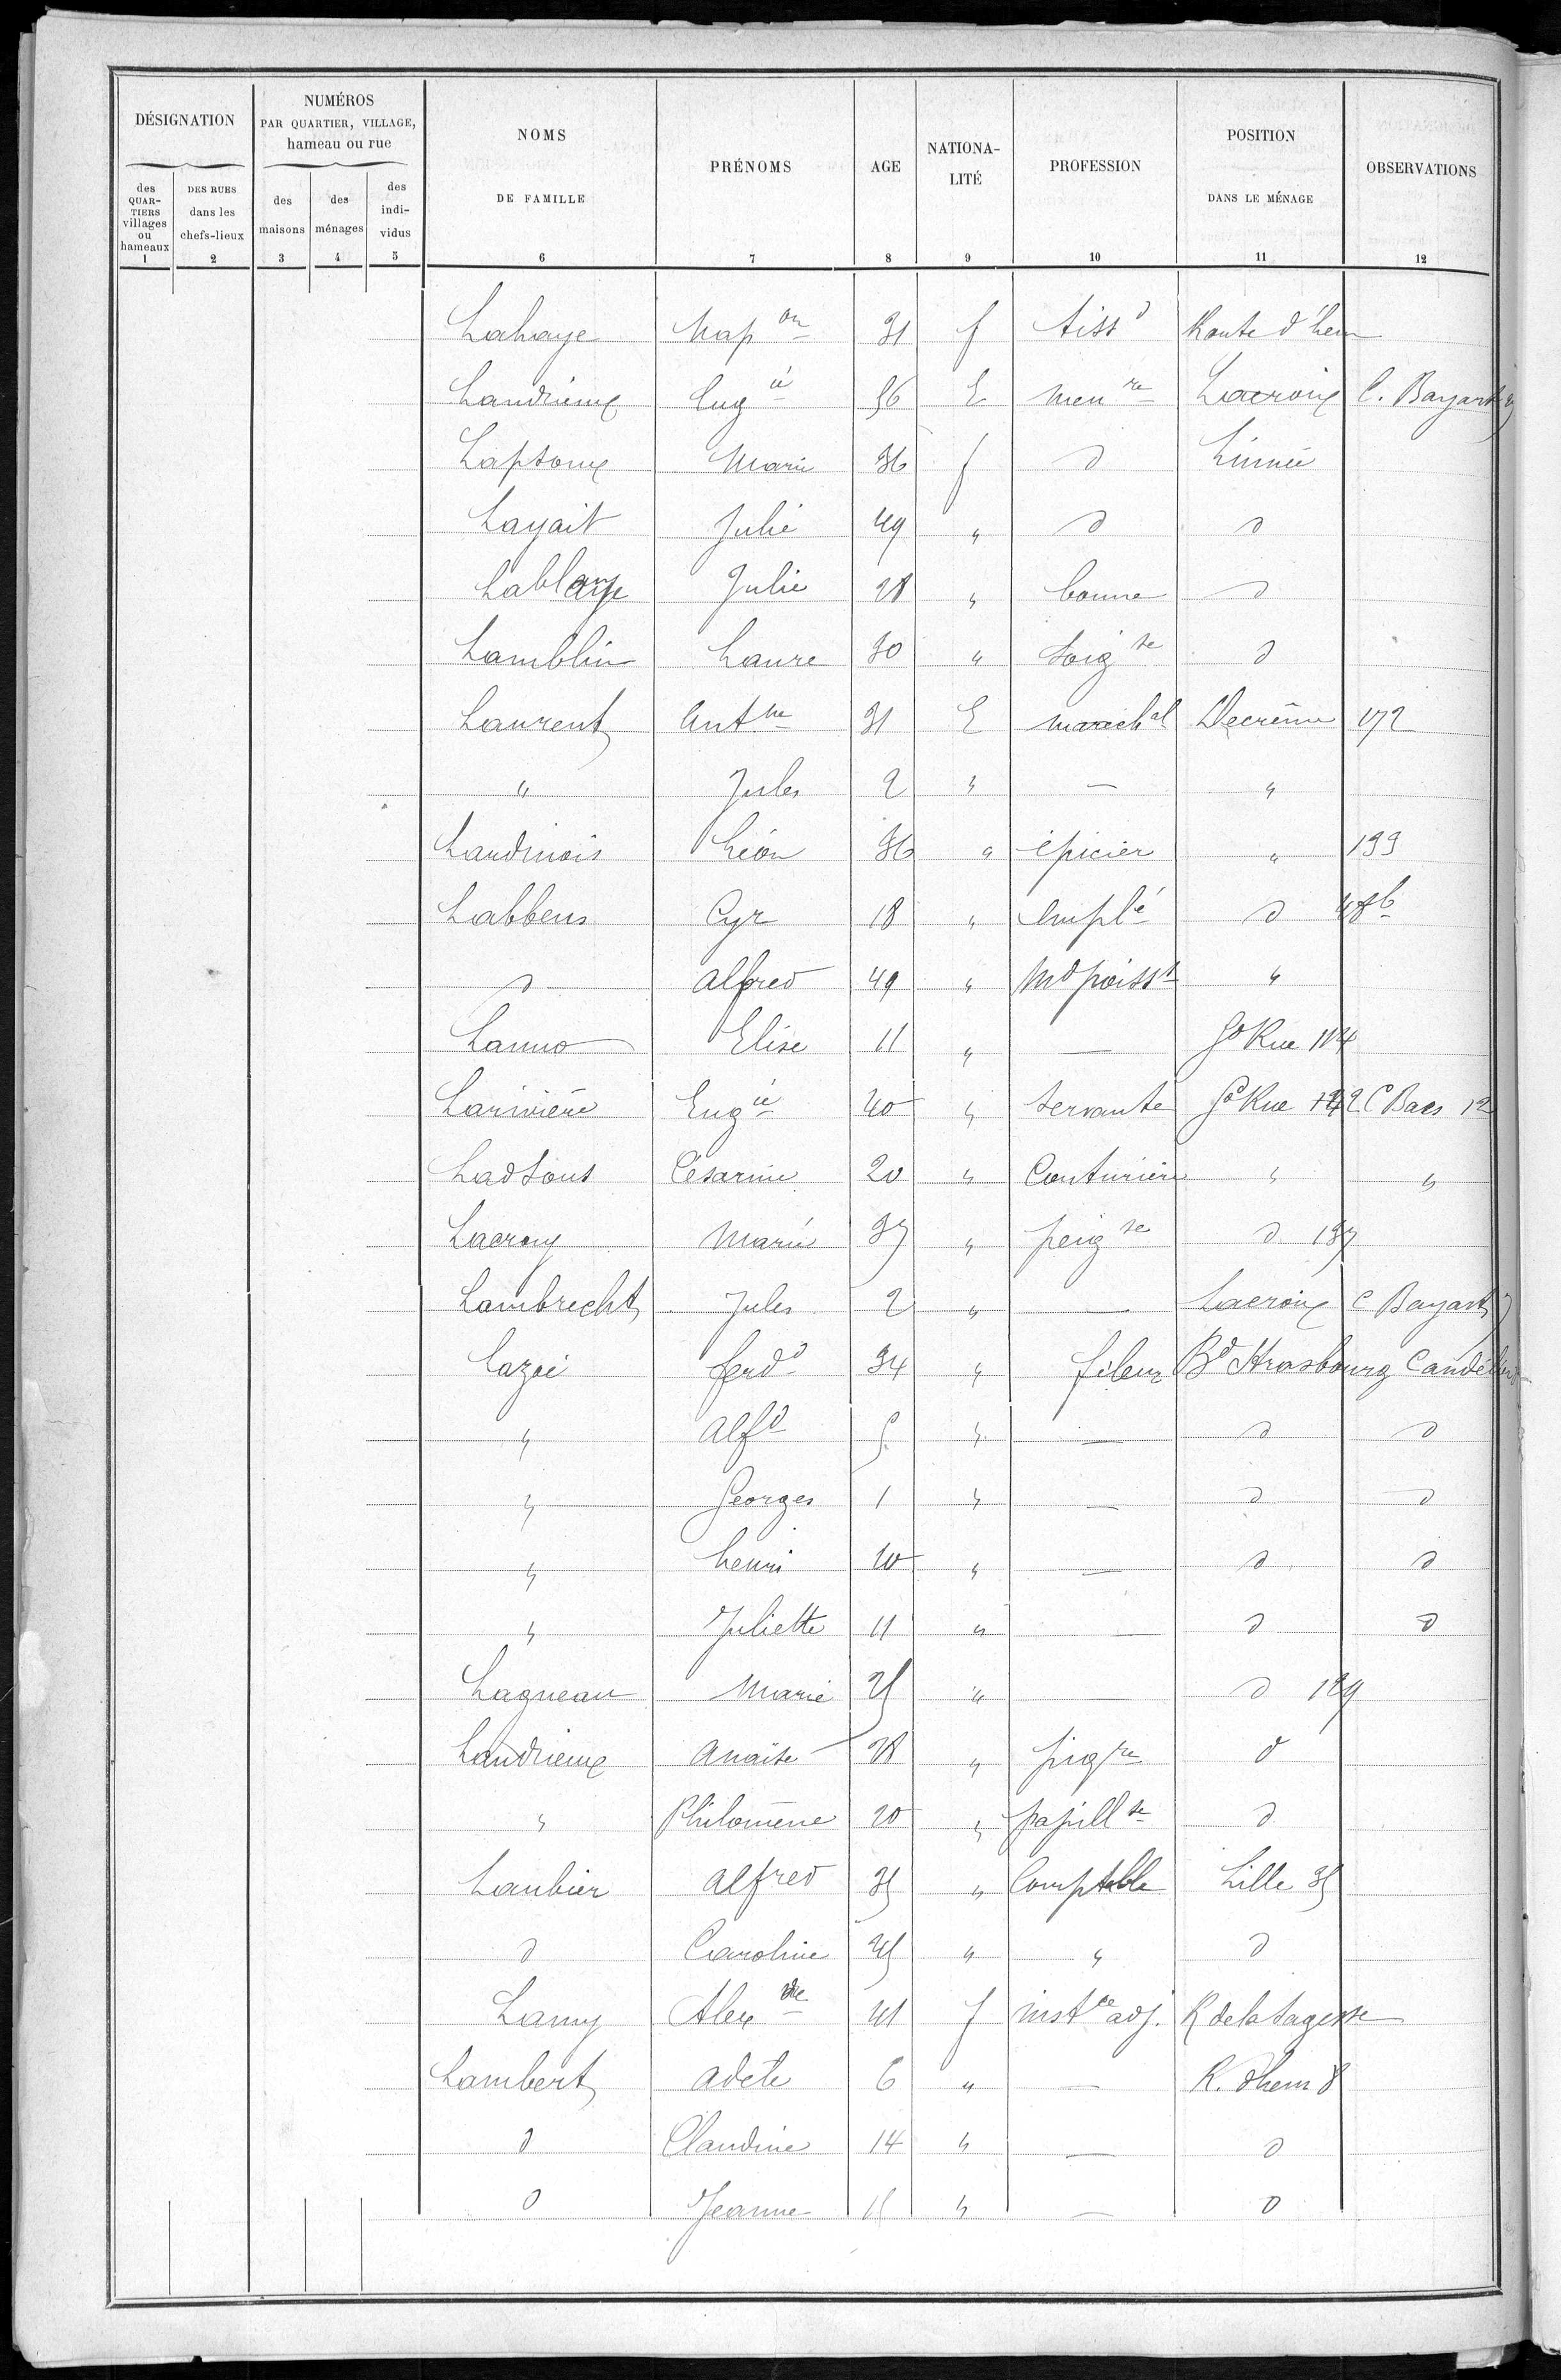 DÉSIGNATION
NUMÉROS
PAR QUARTIER, VILLAGE,
hameau ou rue
NOMS
DE FAMILLE
PRÉNOMS
AGE
NATIONA-
LITÉ
PROFESSION
POSITION
DANS LE MÉNAGE
OBSERVATIONS
des QUAR-TIERS villages ou hameaux
DES RUES dans les chefs-lieux
des maisons
des ménages
des indi-vidus
1 2 3 4 5 6 7 8 9 10 11 12
Lahaye Nap on 31 f tiss d Route d'hem
Landrieux Eug ie 56 E men re Lacroix C. Bayart
Laptoux Marie 36 f d Linnée
Layait Julie 49 " d d
Lablanje Julie 28 " bonne d
Lamblin Laure 30 " soig se d
Laurent Ant ne 31 E marech al Decrême 172
" Jules 2 " — "
Laudinois Léon 36 " épicier " 199
Labbens Cyr 18 " emplé d
d Alfred 49 " Md poisst "
Lanno Elise 11 " — Gd Rue 114
Larivière Eug ie 40 " servante Gde Rue 142 C Baes 12
Ladsous Césarine 20 " Couturière " "
Lacroy Marie 37 " peig se d 137
Lambrecht Jules 2 " — Lacroix C Bayart 7
Cazé ferd d 34 " fileur Bd Strasbourg
" Alf d 5 " — d d
" Georges 1 " — d d
" henri 10 " — d d
" Juliette 11 " — d d
Lagneau Marie 25 " — d 129
Landrieux Anaïse 28 " pig re d
" Philomène 20 " papill se d
Laubier Alfred 35 " Comptable Lille 35
d Caroline 25 " " d
Lamy Alex dre 41 f inst ce adj. R de la Sagesse
Lambert Adèle 6 " — R. d'hem 8
d Claudine 14 " — d
d Jeanne 15 " — d